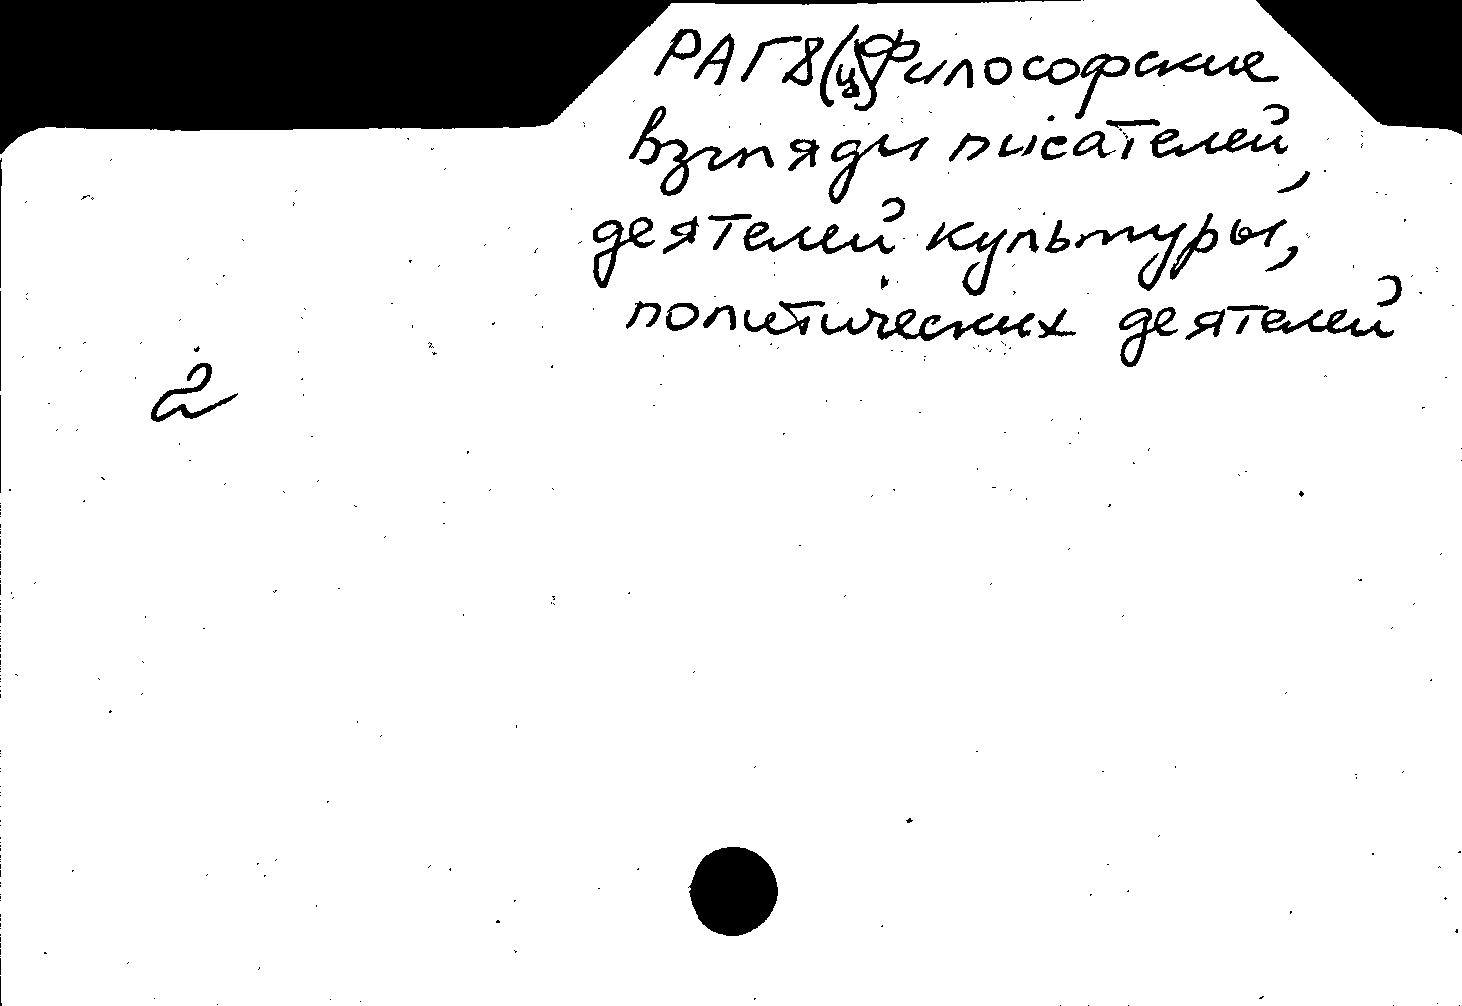 РАГ8(ц)Философские
взгляди писателей,
деятелей культуры,
политических деятелей
2